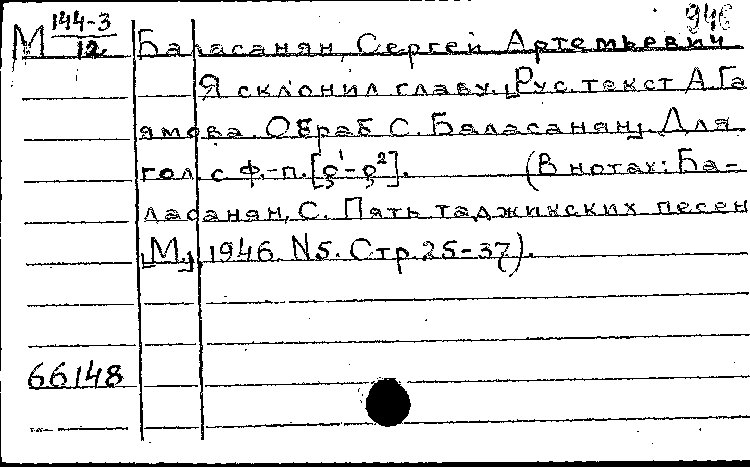 946
М 144-3/12. Баласанян, Сергей Артемьевич
Я склонил главу. [Рус. текст А. Га
ямова. Обраб С. Баласанян]. Для
гол. с ф.-п. [c¹-c²]. (В нотах: Ба-
ласанян, С. Пять таджикских песен
[М.], 1946. N5. Стр. 25-37).
66148